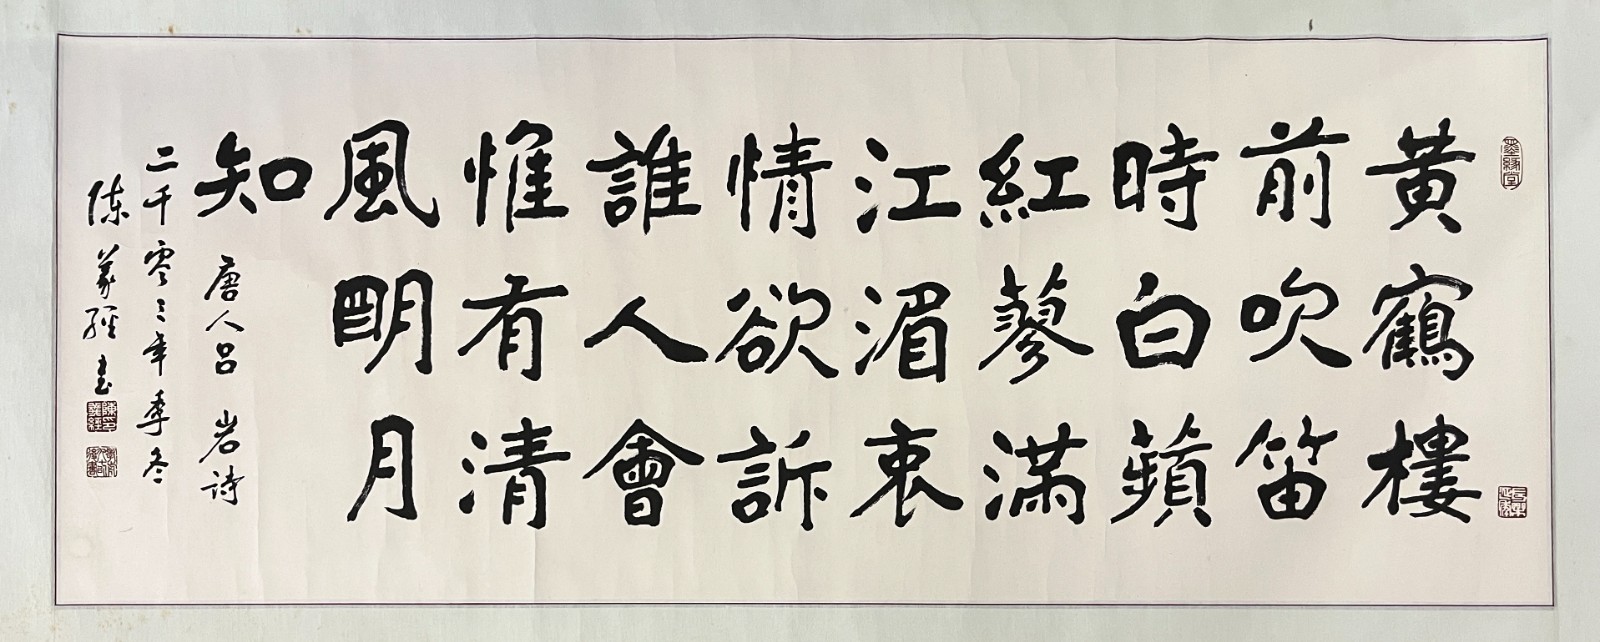 黃鶴樓
前吹笛
時白蘋
紅蓼滿
江湄衷
情欲訴
誰人會
惟有清
風明月
知
唐人吕岩詩
二千零三年季冬
陳義經書
墨緣堂